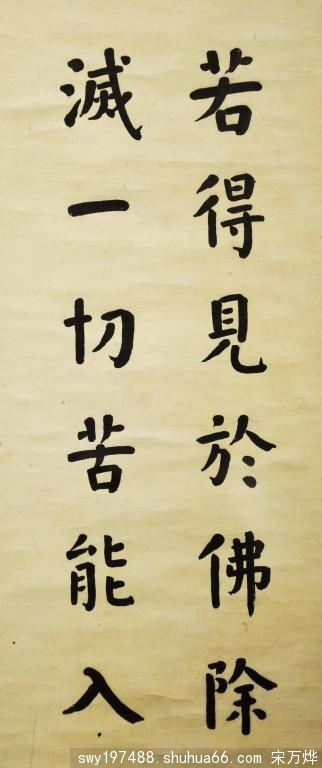 若得見於佛除
滅一切苦能入
swy197488.shuhua66.com 宋万烨